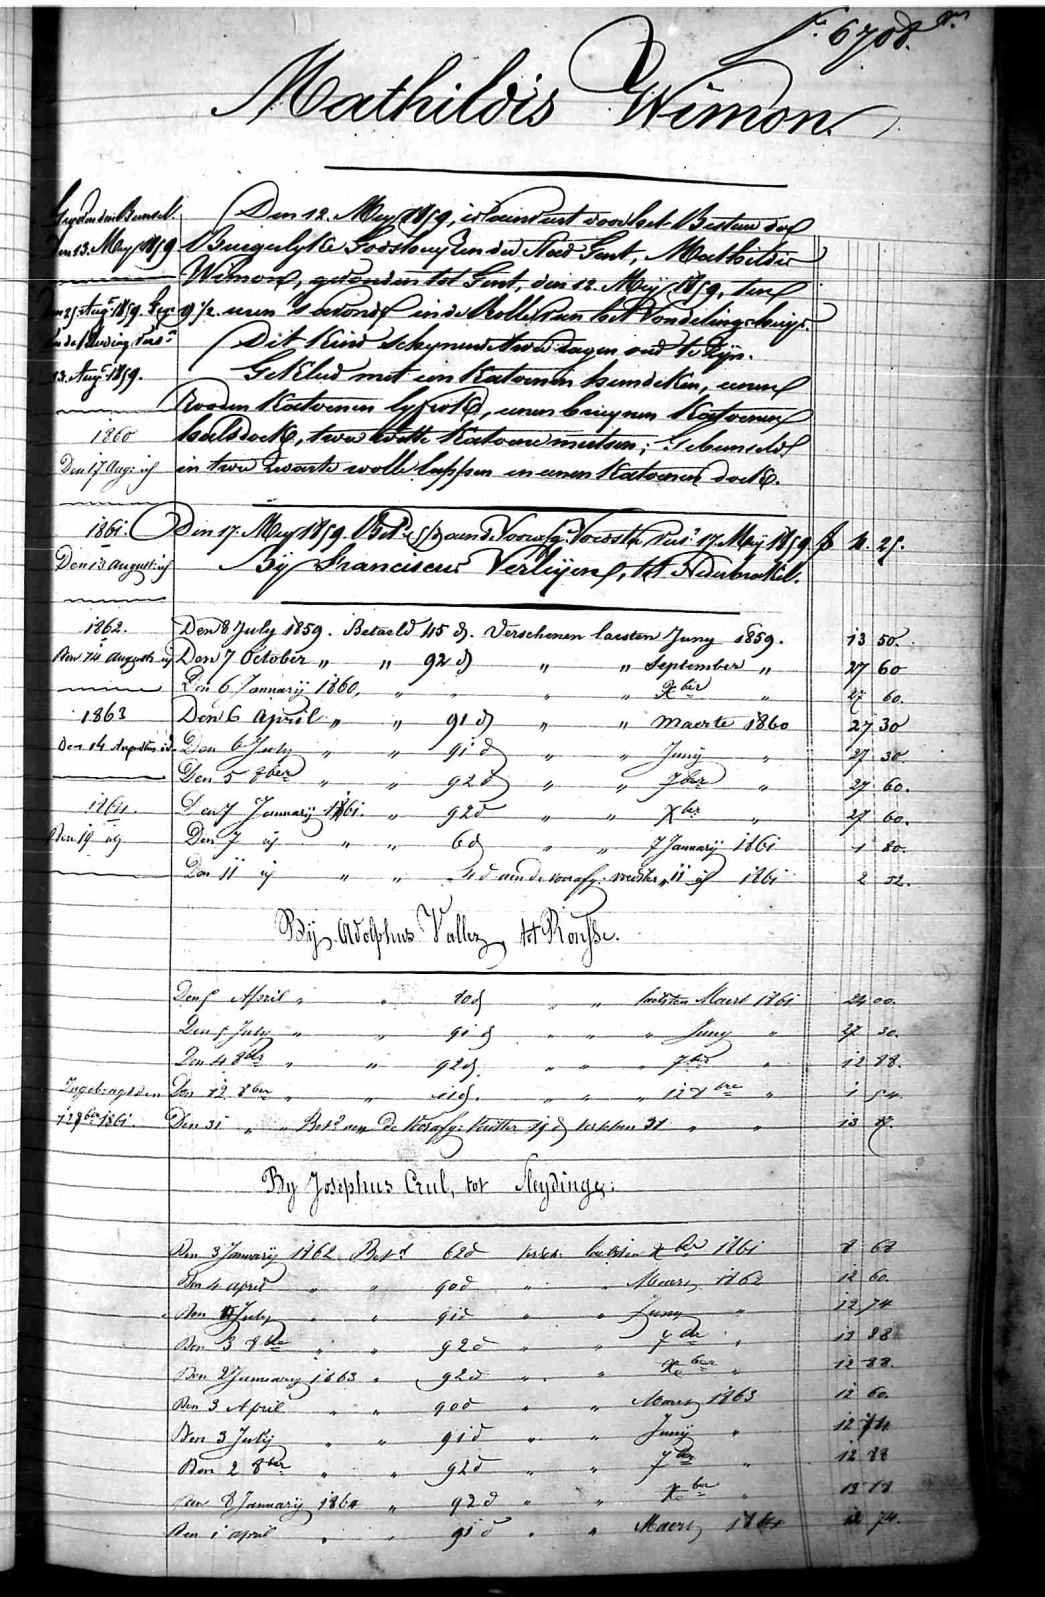 6708.
Mathildis Wimon.
Den 12. Mey 1859, is aenveirt door het Bestuer der
Den 13. Mey 1859
Burgerlyke Godshuyzen der Stad Gent, Mathildis
Wimon, gevonden tot Gent, den 12. Mey 1859, ten
Aug. 1859.
9 1/2 uren 's avonds in de Rolle van het Vondelingshuys.
Dit Kind schynende twee dagen oud te zyn.
13. Aug. 1859.
Gekleed met een Katoenen hemdeken, eenen
Rooden Katoenen lyfrok, eenen bruynen Katoenen
1860
halsdoek, twee witte Katoene mutsen; Gebunseld
Den 17 Aug: id
in twee zwarte wolle lappen en eenen Katoenen doek.
1861.
Den 17. Mey 1859. 17 Mey 1859 f 4. 25.
Den 13 august: id
By Franciscus Verleyen, tot Nederbrakel.
1862.
Den 8 July 1859. Betaeld 45 d. Verschenen laesten Juny 1859. 13 50.
Den 14 Augusti id
Den 7 October " " 92 d " " September " 27 60
Den 6 January 1860, " " " " Xber " 27 60.
1863
Den 6 April " " 91 d " " Maerte 1860 27 30
Den 14 Augustus id.
Den 6 July " " 91 d " " Juny " 27 30.
Den 5 8ber " " 92 d " " 7ber " 27 60.
1864.
Den 7 January 1861. " 92 d " " Xber " 27 60.
Den 19 id
Den 7 id " " 6 d " " 7 January 1861 1 80.
Den 11 id " " 11 id 1861 2 52.
By Adolphus Vallez, tot Rousse.
Den 5 April " " 80 d " " laetsten Maert 1861 24 00.
Den 5 July " " 91 d " " " Juny " 27 30.
Den 4 8ber " " 92 d. " " 7ber " 12 88.
Den 12 8ber " " 11 d. " " " 12 8bre " 1 54.
1861.
Den 31 " " Bet. aen de 19 d 31 " "
By Josephus Crul, tot Sleydinge.
Den 3 January 1862 Bet. 62 d versch. laetsten Xber 1861 8 68
Den 4 april " " 90 d " " Maert 1862 12 60.
Den July " " 91 d " " Juny " 12 74
Den 3 8bre " " 92 d " " 7bre " 12 88
Den 2 January 1863 " 92 d " " Xber " 12 88.
Den 3 April " " 90 d " " Maert 1863 12 60.
Den 3 July " " 91 d " " Juny " 12 74
Den 2 8ber " " 92 d " " 7ber " 12 88
Den 8 January 1864 " 92 d " " Xber "
Den 1 april " " 91 d " " Maert 1864 12 74.